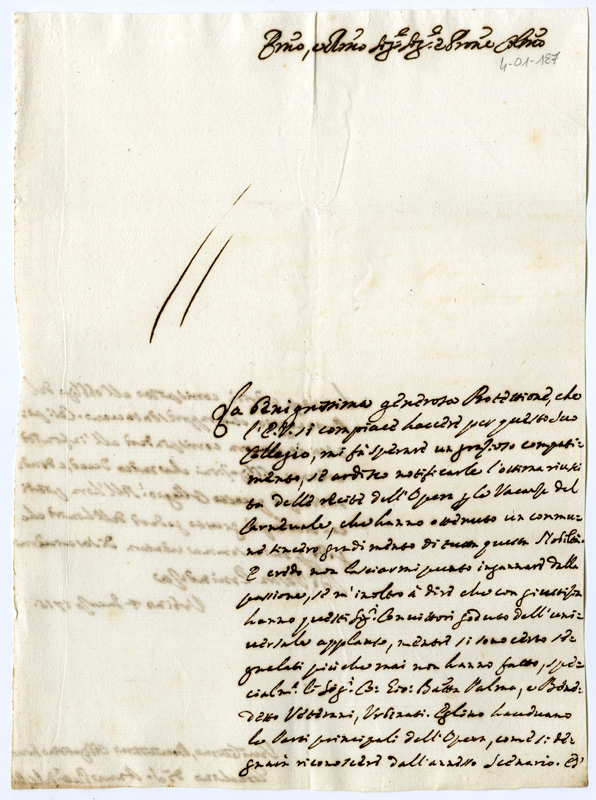 Emo, e Rmo Sig:re Sig:re e Prone Colmo
4-01-187
La benignissima generosa Protettione, che
l'E.V. si compiace havere per questo suo
Collegio, mi fà sperare un grazioso compati=
mento, se ardisco notificarle l'ottima riusci
ta delle recite dell'Opera p le Vacanze del
Carnevale, che hanno ottenuto un commu=
ne sincero gradimento di tutta questa Nobiltà.
E credo non lasciarmi punto ingannare dalla
passione, se m'inoltro à dire che con giustizia
hanno questi Sig:ri Convittori goduto dell'uni=
versale applauso, mentre si sono certo se=
gnalati più che mai non hanno fatto, spe=
cialm:te li Sig:ri Co: Gio: Batta Palma, e Bene=
detto Veterani, Urbinati. Eglino haveano
le Parti principali dell'Opera, come si de=
gnarà riconoscere dall'annesso Scenario. Ed